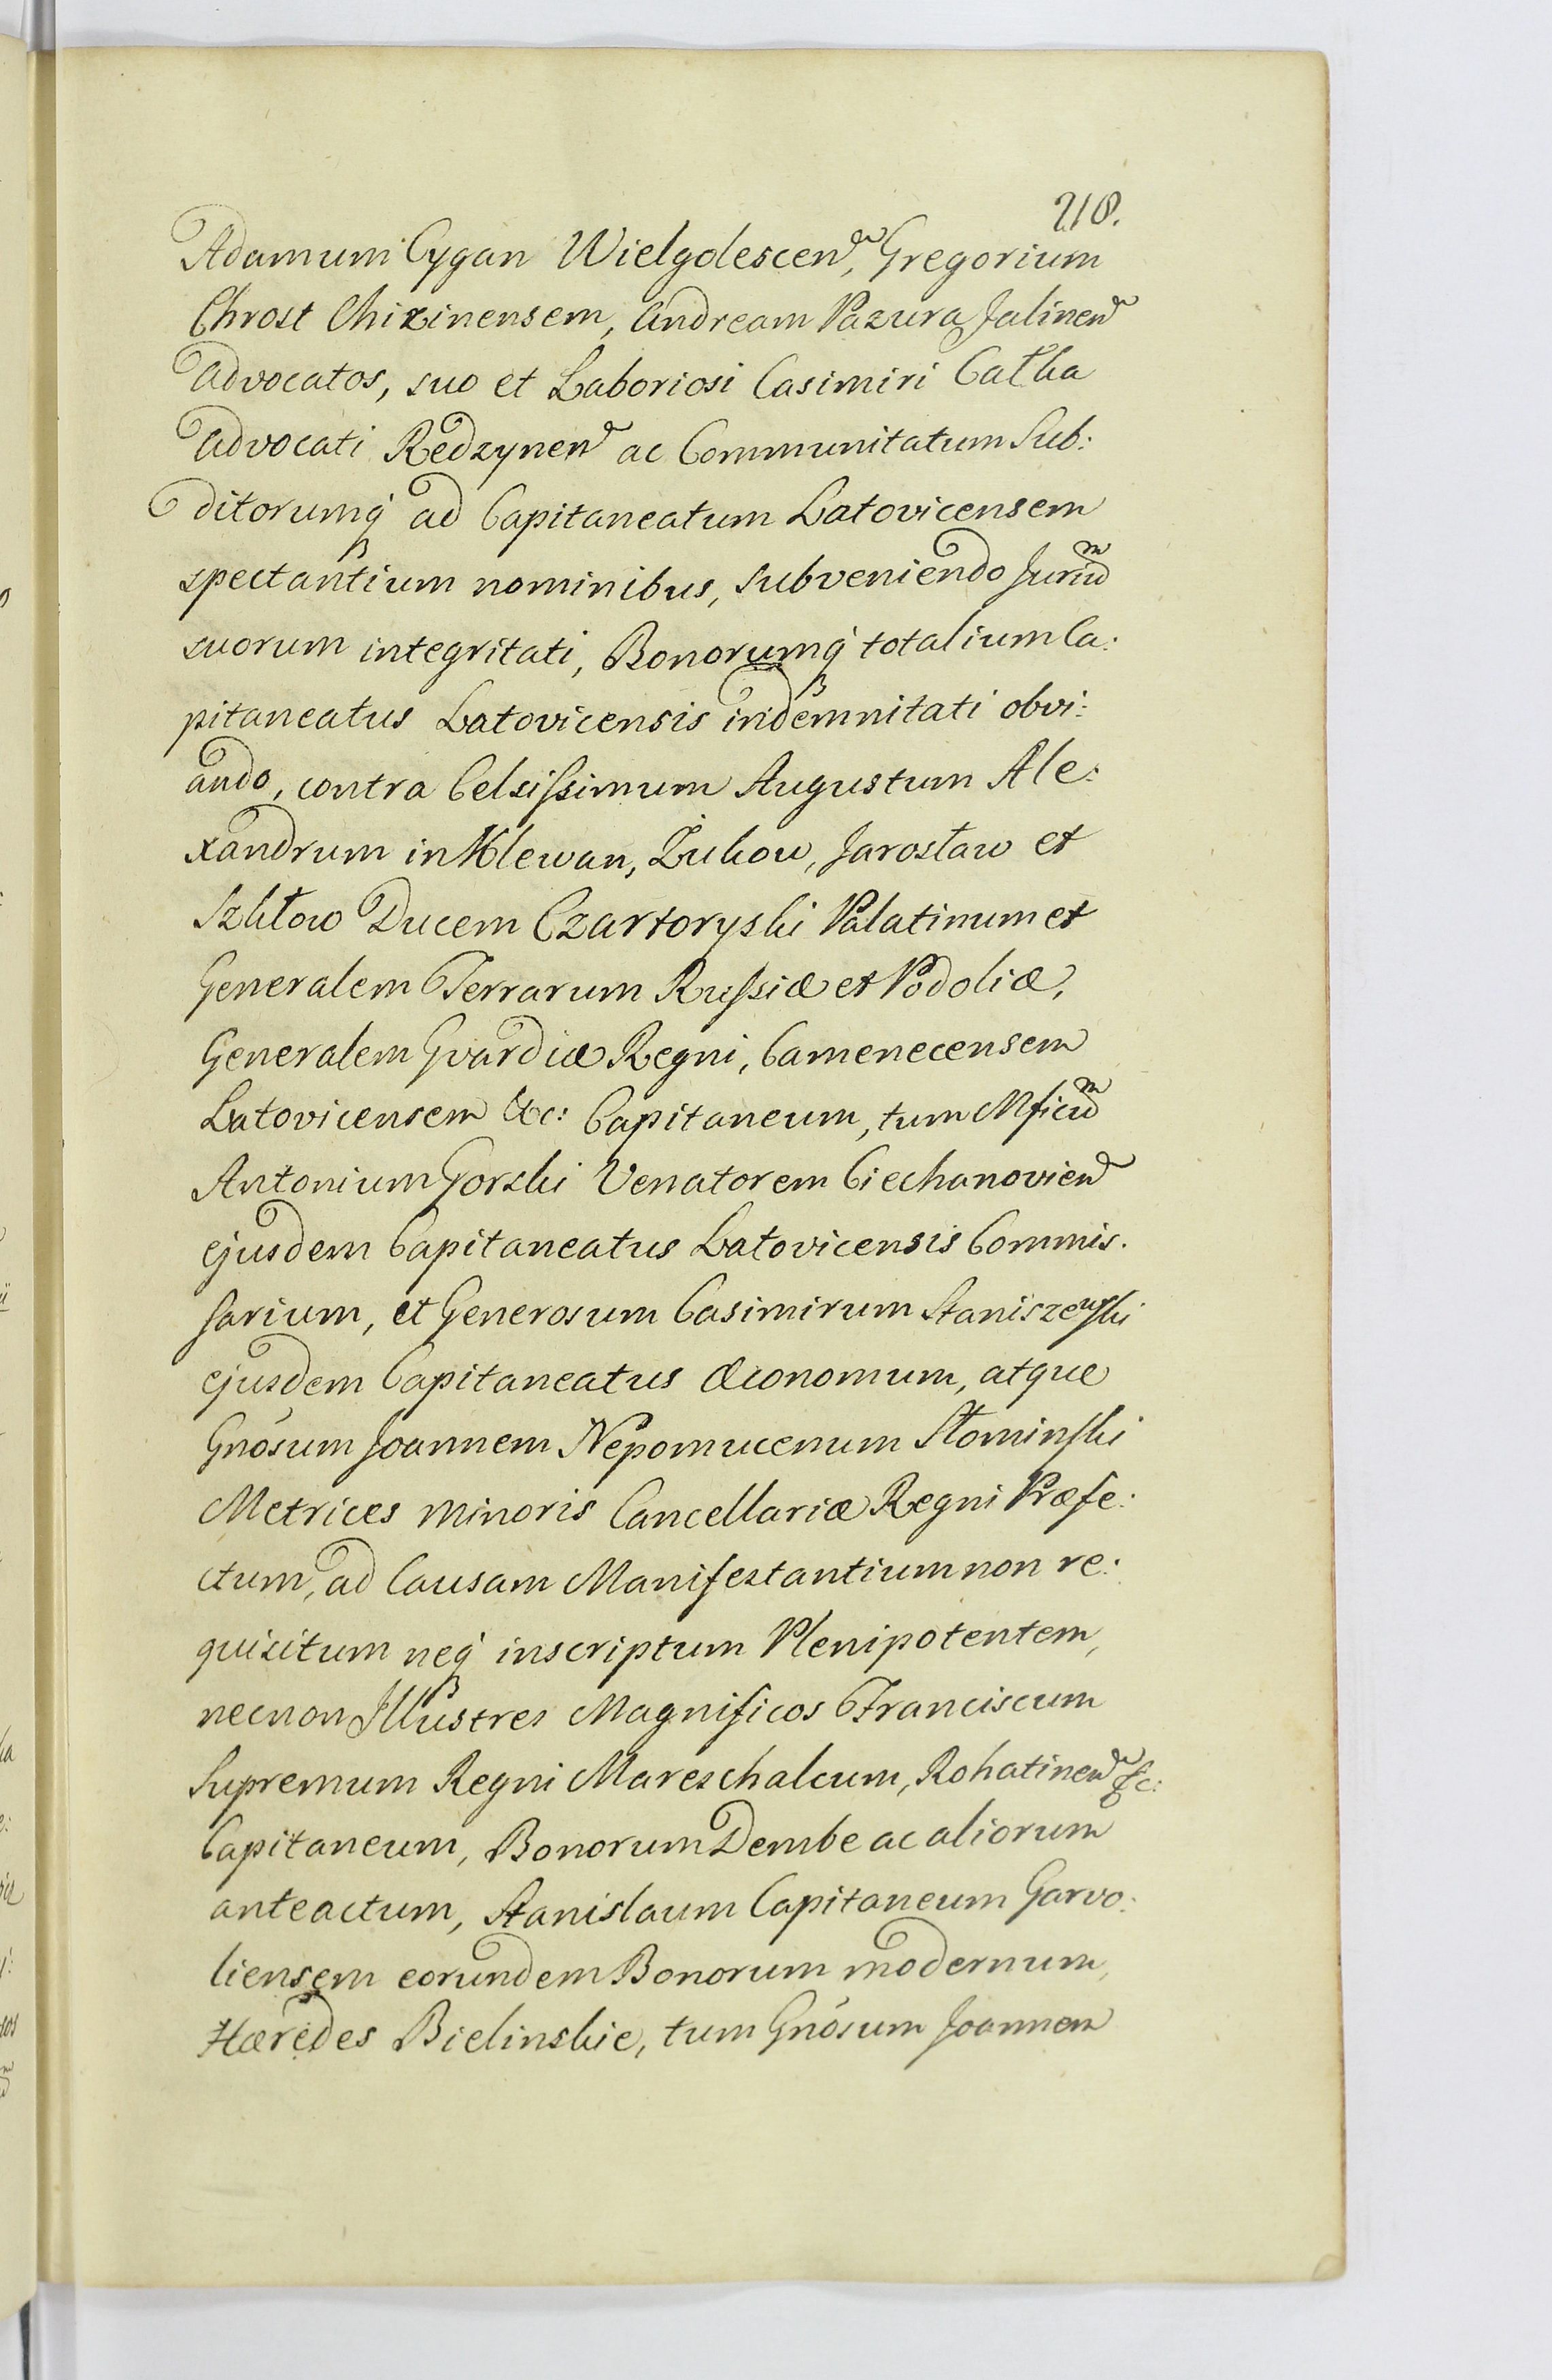 218.
Adamum Cygan Wielgolescen, Gregorium
Chrost Chizinensem, Andream Pazura Jalinen
Advocatos, suo et Laboriosi Casimiri Całka
Advocati Redzynen ac Communitatum Sub:
ditorumq́ ad Capitaneatum Latovicensem
spectantium nominibus, subveniendo Jurium
suorum integritati, Bonorumq́ totalium Ca:
pitaneatus Latovicensis indemnitati obvi:
ando, contra Celsissimum Augustum Ale:
xandrum in Klewan, Żukow, Jarosław et
Szkłow Ducem Czartoryski Palatinum et
Generalem Terrarum Russiæ et Podoliæ,
Generalem Gvardiæ Regni, Camenecensem
Latovicensem &c: Capitaneum, tum Mficum
Antonium Gorski Venatorem Ciechanovien
ejusdem Capitaneatus Latovicensis Commis.
sarium, et Generosum Casimirum Staniszewski
ejusdem Capitaneatus Œconomum, atque
Gnósum Joannem Nepomucenum Słominski
Metrices Minoris Cancellariæ Regni Præfe:
ctum, ad Causam Manifestantium non re:
quisitum neq́ inscriptum Plenipotentem,
necnon Illustres Magnificos Franciscum
Supremum Regni Mareschalcum, Rohatinen &c:
Capitaneum, Bonorum Dembe ac aliorum
anteactum, Stanislaum Capitaneum Garvo:
liensem eorundem Bonorum modernum,
Hæredes Bielinskie, tum Gnósum Joannem